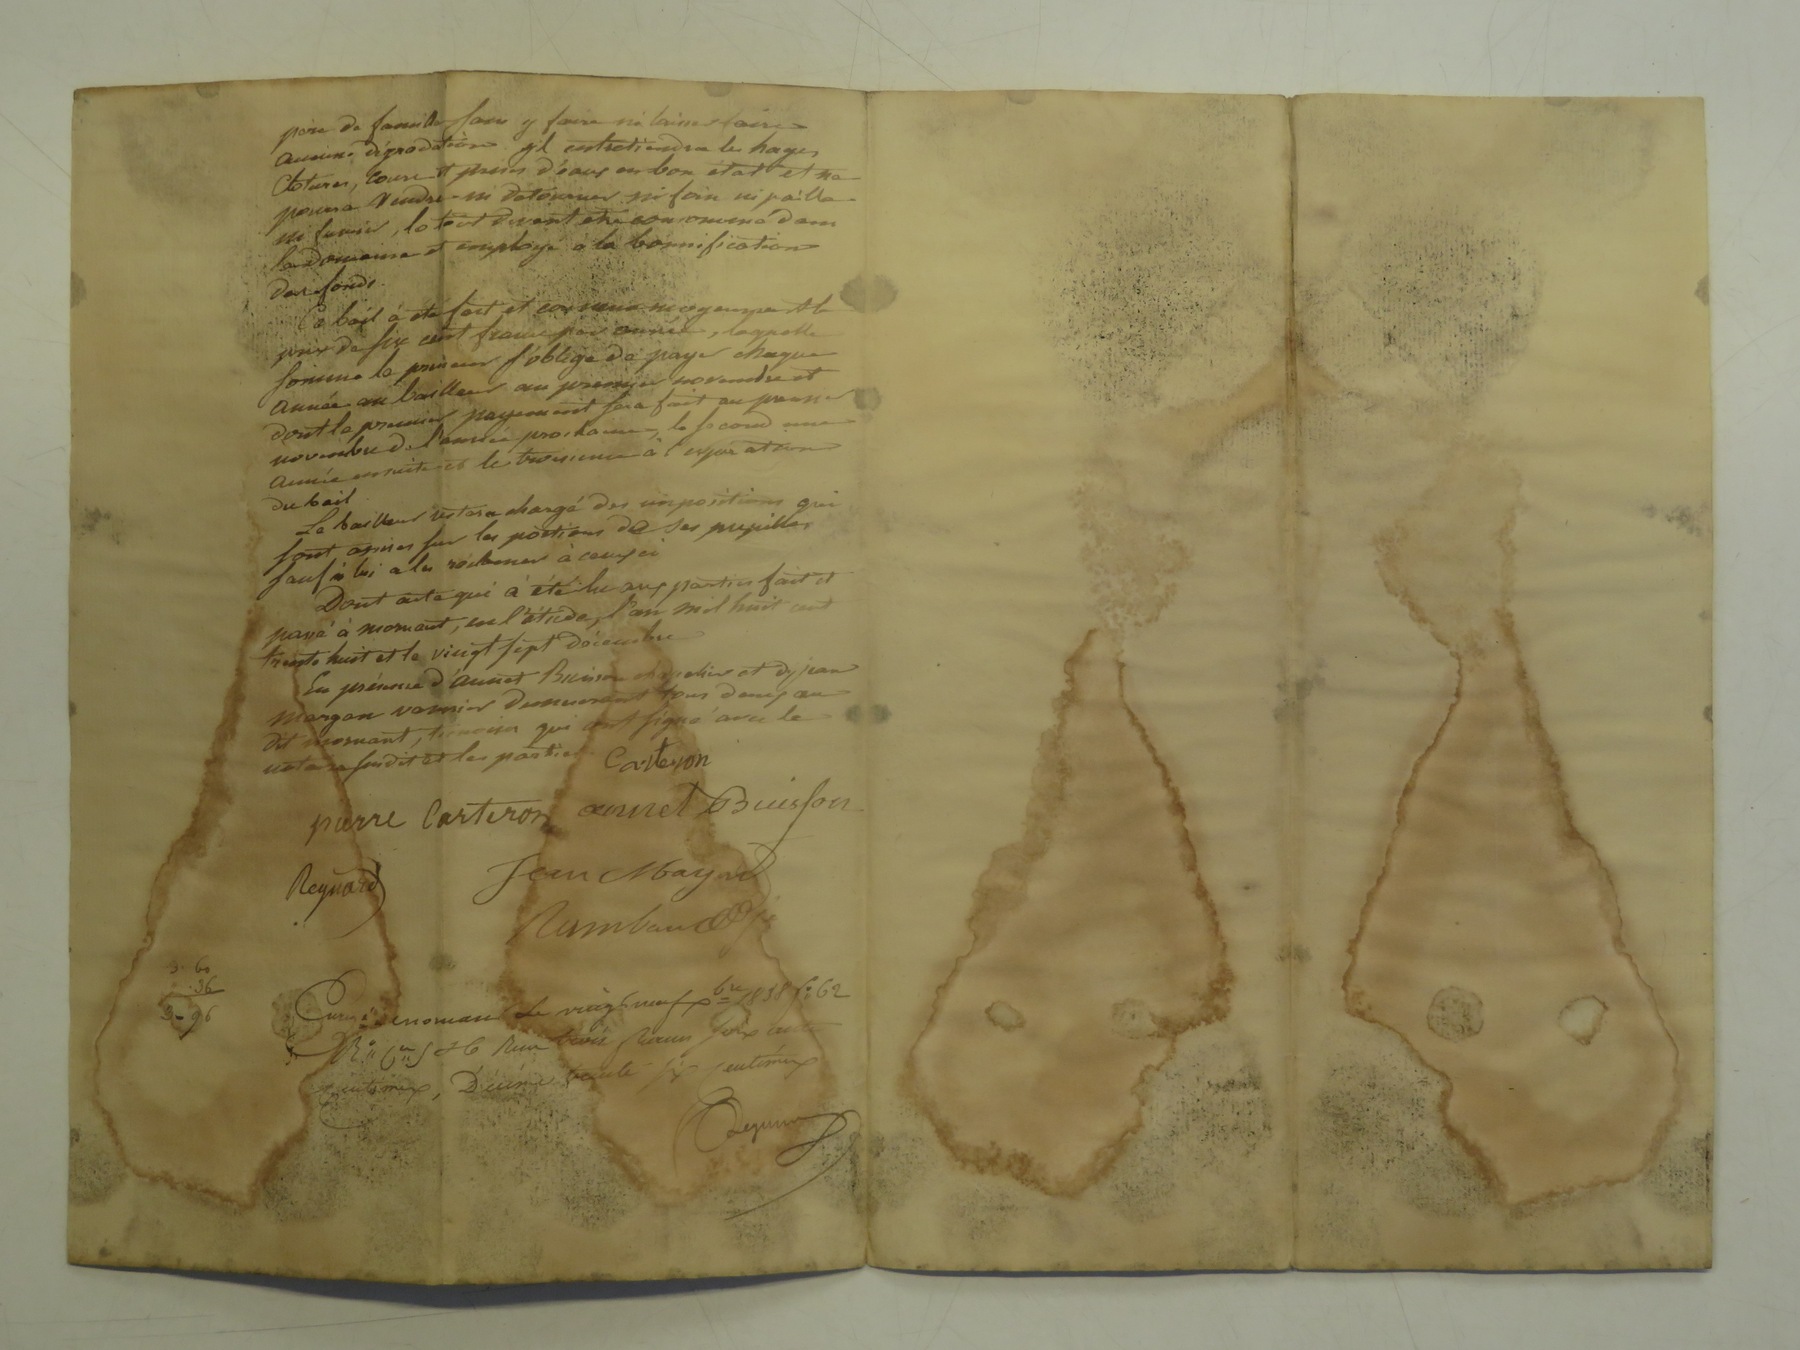 père de famille sans y faire ni laisser faire
aucune dégradation. yl entretiendra les hayes
clotures, cours et prises d'eaux en bon état et ne
pourra vendre ni detourner ni foin ni paille
ni fumier, le tout devant etre consommé dans
le domaine et employé à la bonnification
des fonds.
Ce bail à été fait et convenu moyennant le
prix de six cent francs par année, laquelle
somme le preneur s'oblige de payer chaque
année au bailleur au premier novembre et
dont le premier payement sera fait au premier
novembre de l'année prochaine, le second une
année ensuite et le troisieme à l'expiration
du bail.
Le bailleur restera chargé des impositions qui
sont assises sur les portions de ses pupilles
sauf à lui a les réclamer à ceux ci
Dont acte qui à été lu aux parties fait et
passé à mornant, en l'étude, l'an mil huit cent
trente huit et le vingt sept décembre
En présence d'annet Buisson et de jean
margan vannier demeurant tous deux au
dit mornant, témoins qui ont signé avec le
notaire susdit et les parties
Carteron
pierre Carteron annet Buisson
Reynard Jean
Rambaud
3. 60
. 36
3 - 96
le vingt neuf xbre 1838 fo 62
Ro Reçu trois francs soix ante
centimes, Décime trente six centimes